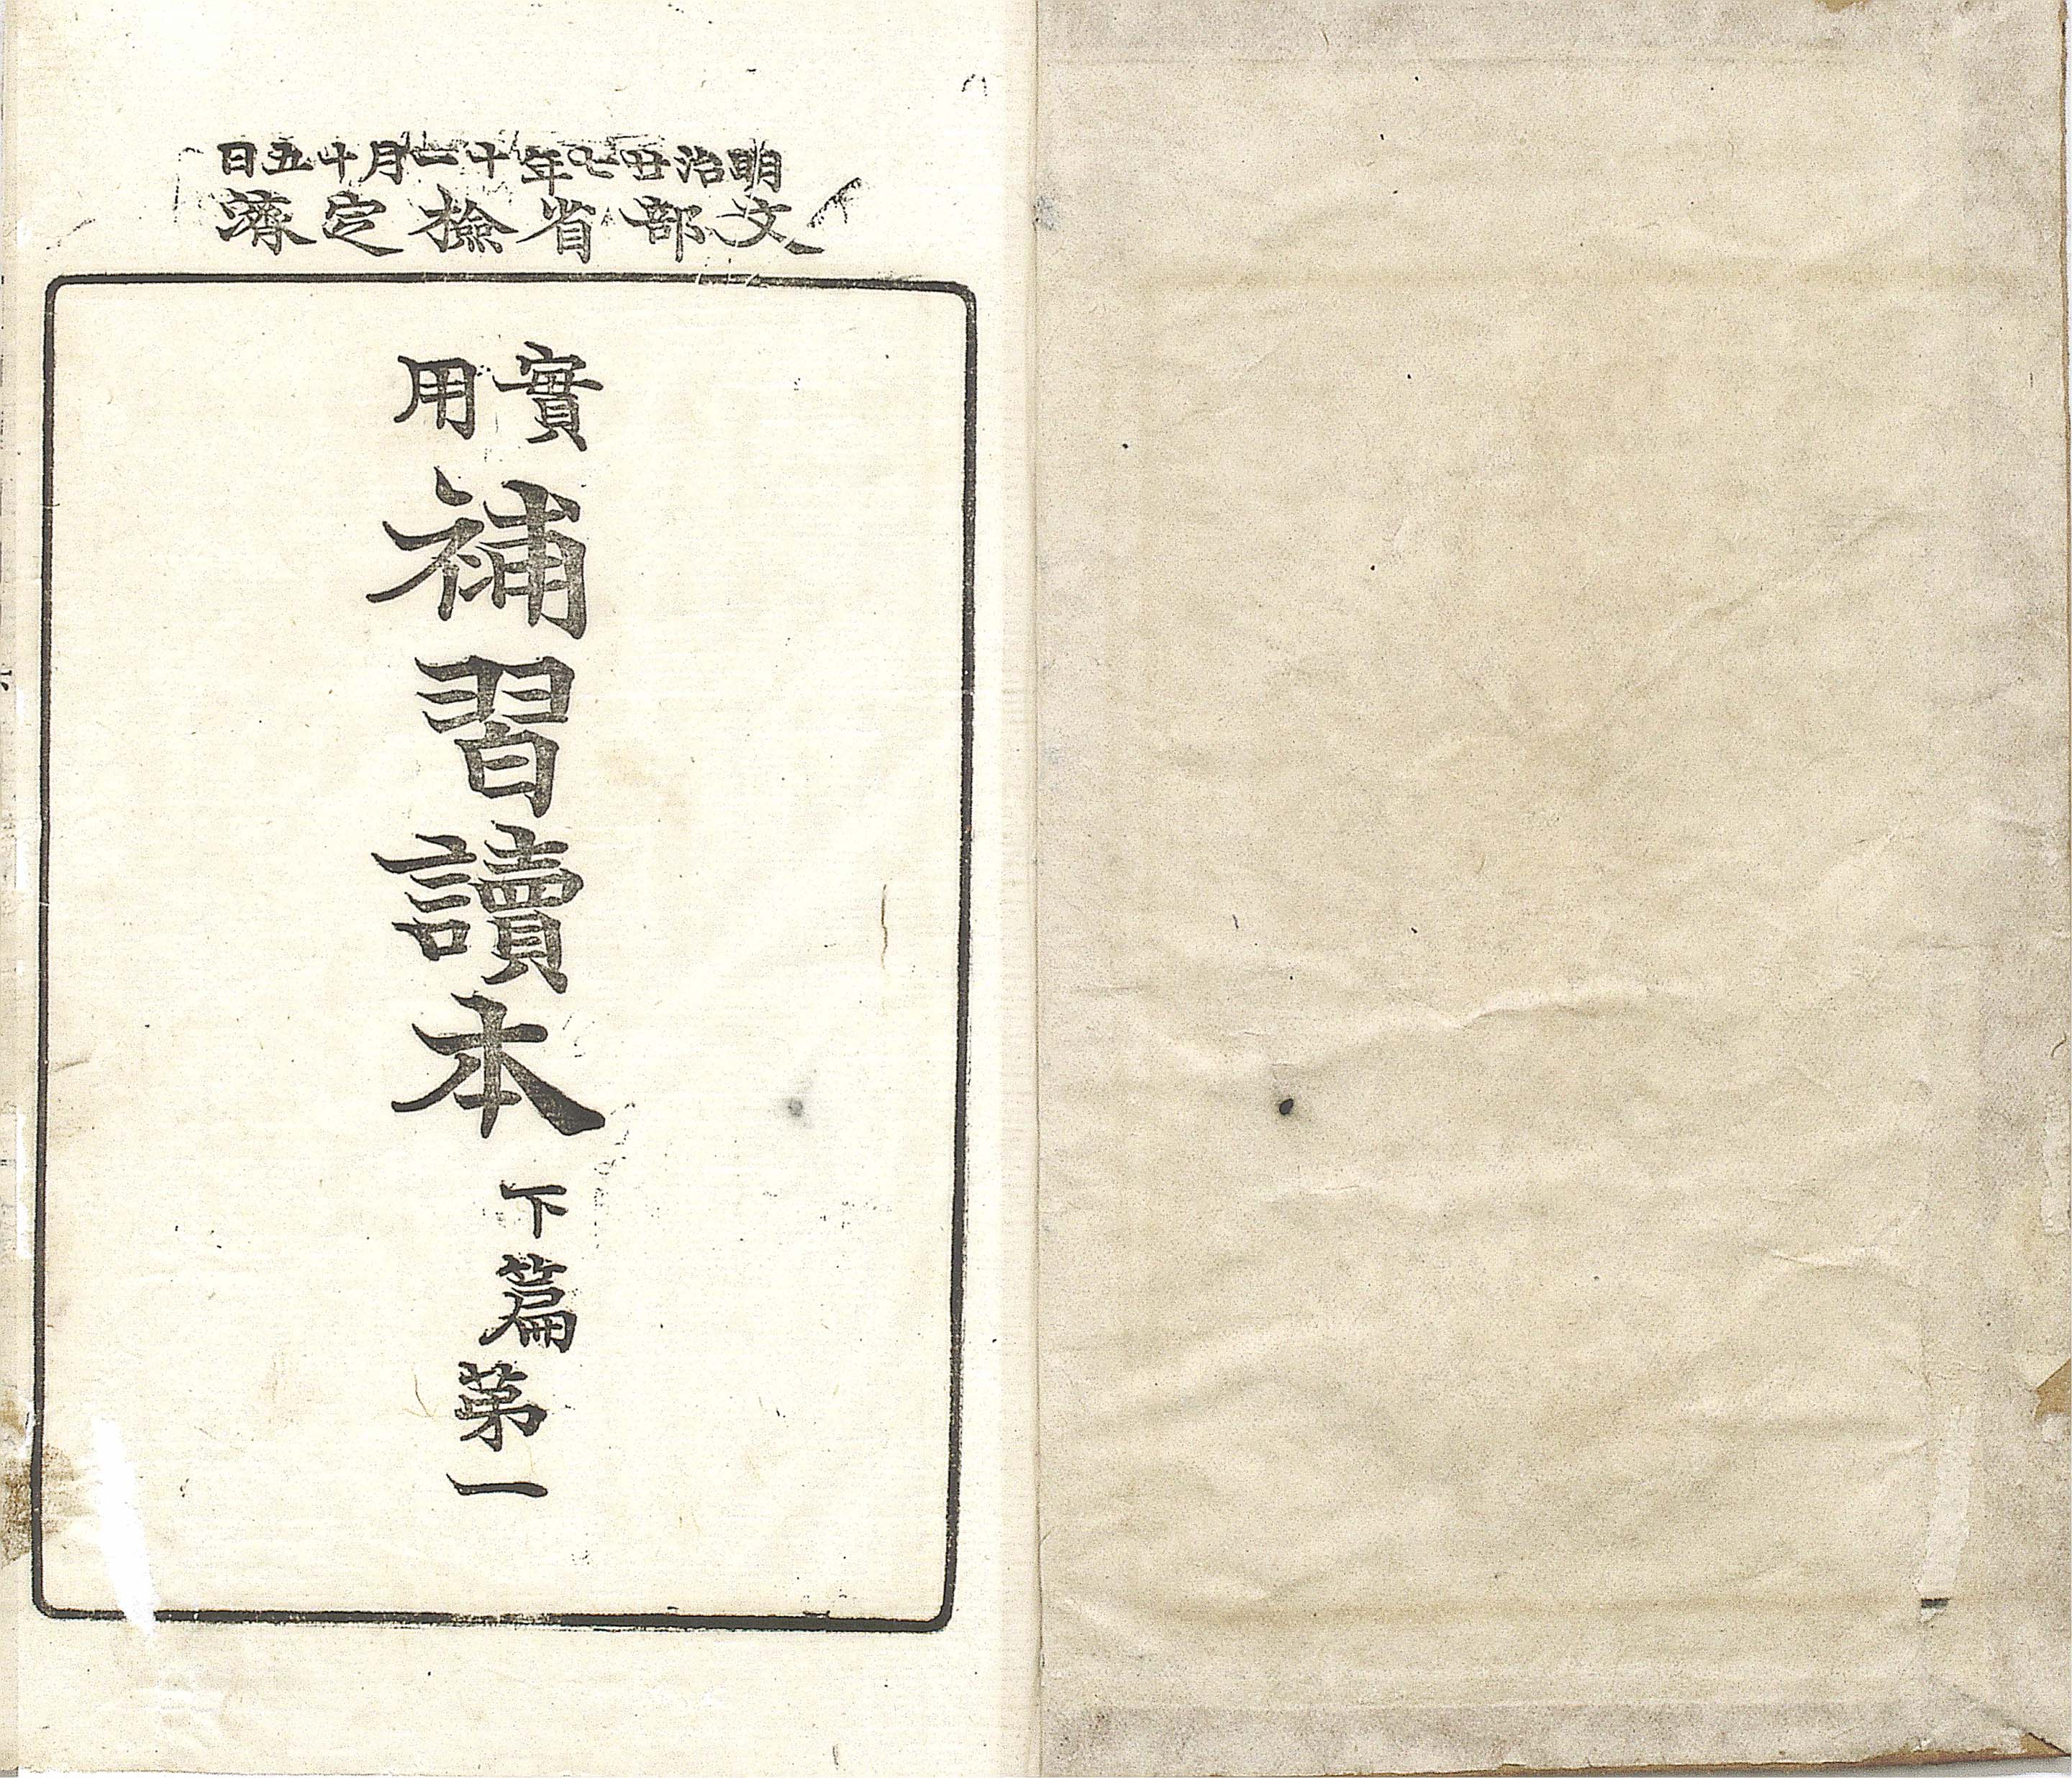 明治廿七年十一月十五日
文部省檢定濟
實用
補習讀本
下篇第一